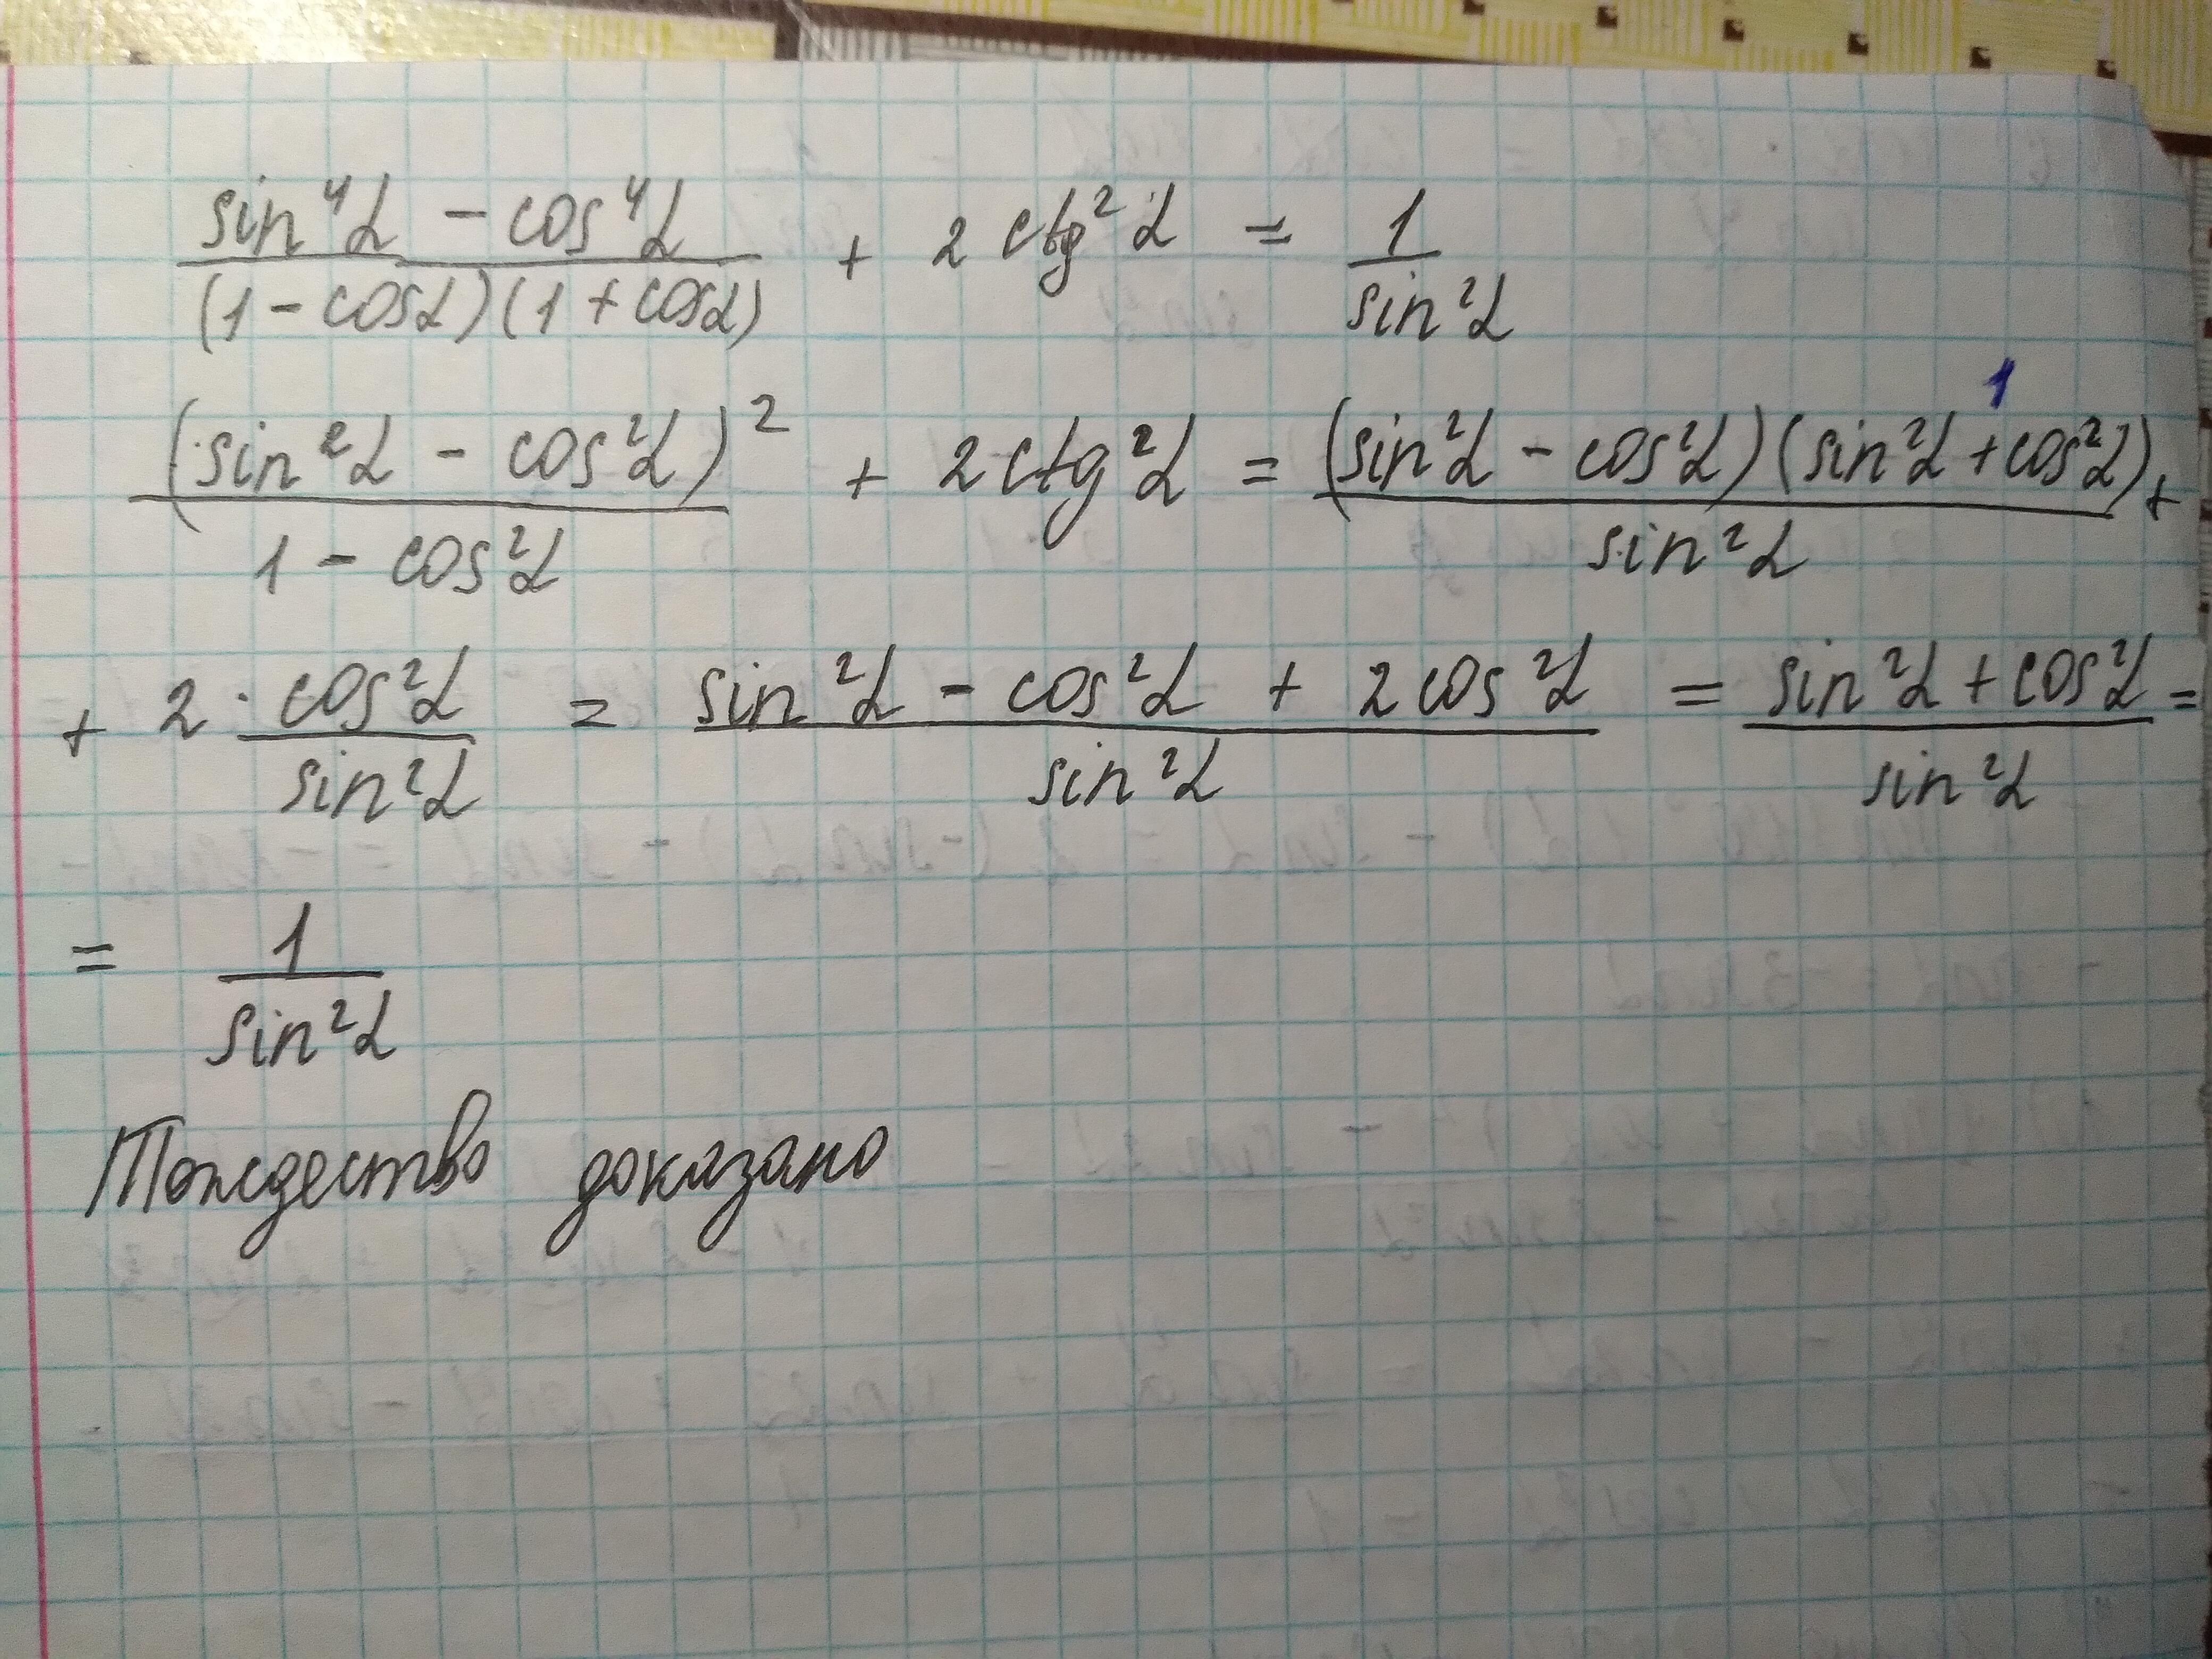 (sin⁴α − cos⁴α)/((1 − cosα)(1 + cosα)) + 2 ctg²α = 1/sin²α
(sin²α − cos²α)²/(1 − cos²α) + 2ctg²α = (sin²α − cos²α)(sin²α + cos²α)¹/sin²α +
+ 2 · cos²α/sin²α = (sin²α − cos²α + 2cos²α)/sin²α = (sin²α + cos²α)/sin²α =
= 1/sin²α
Тождество доказано